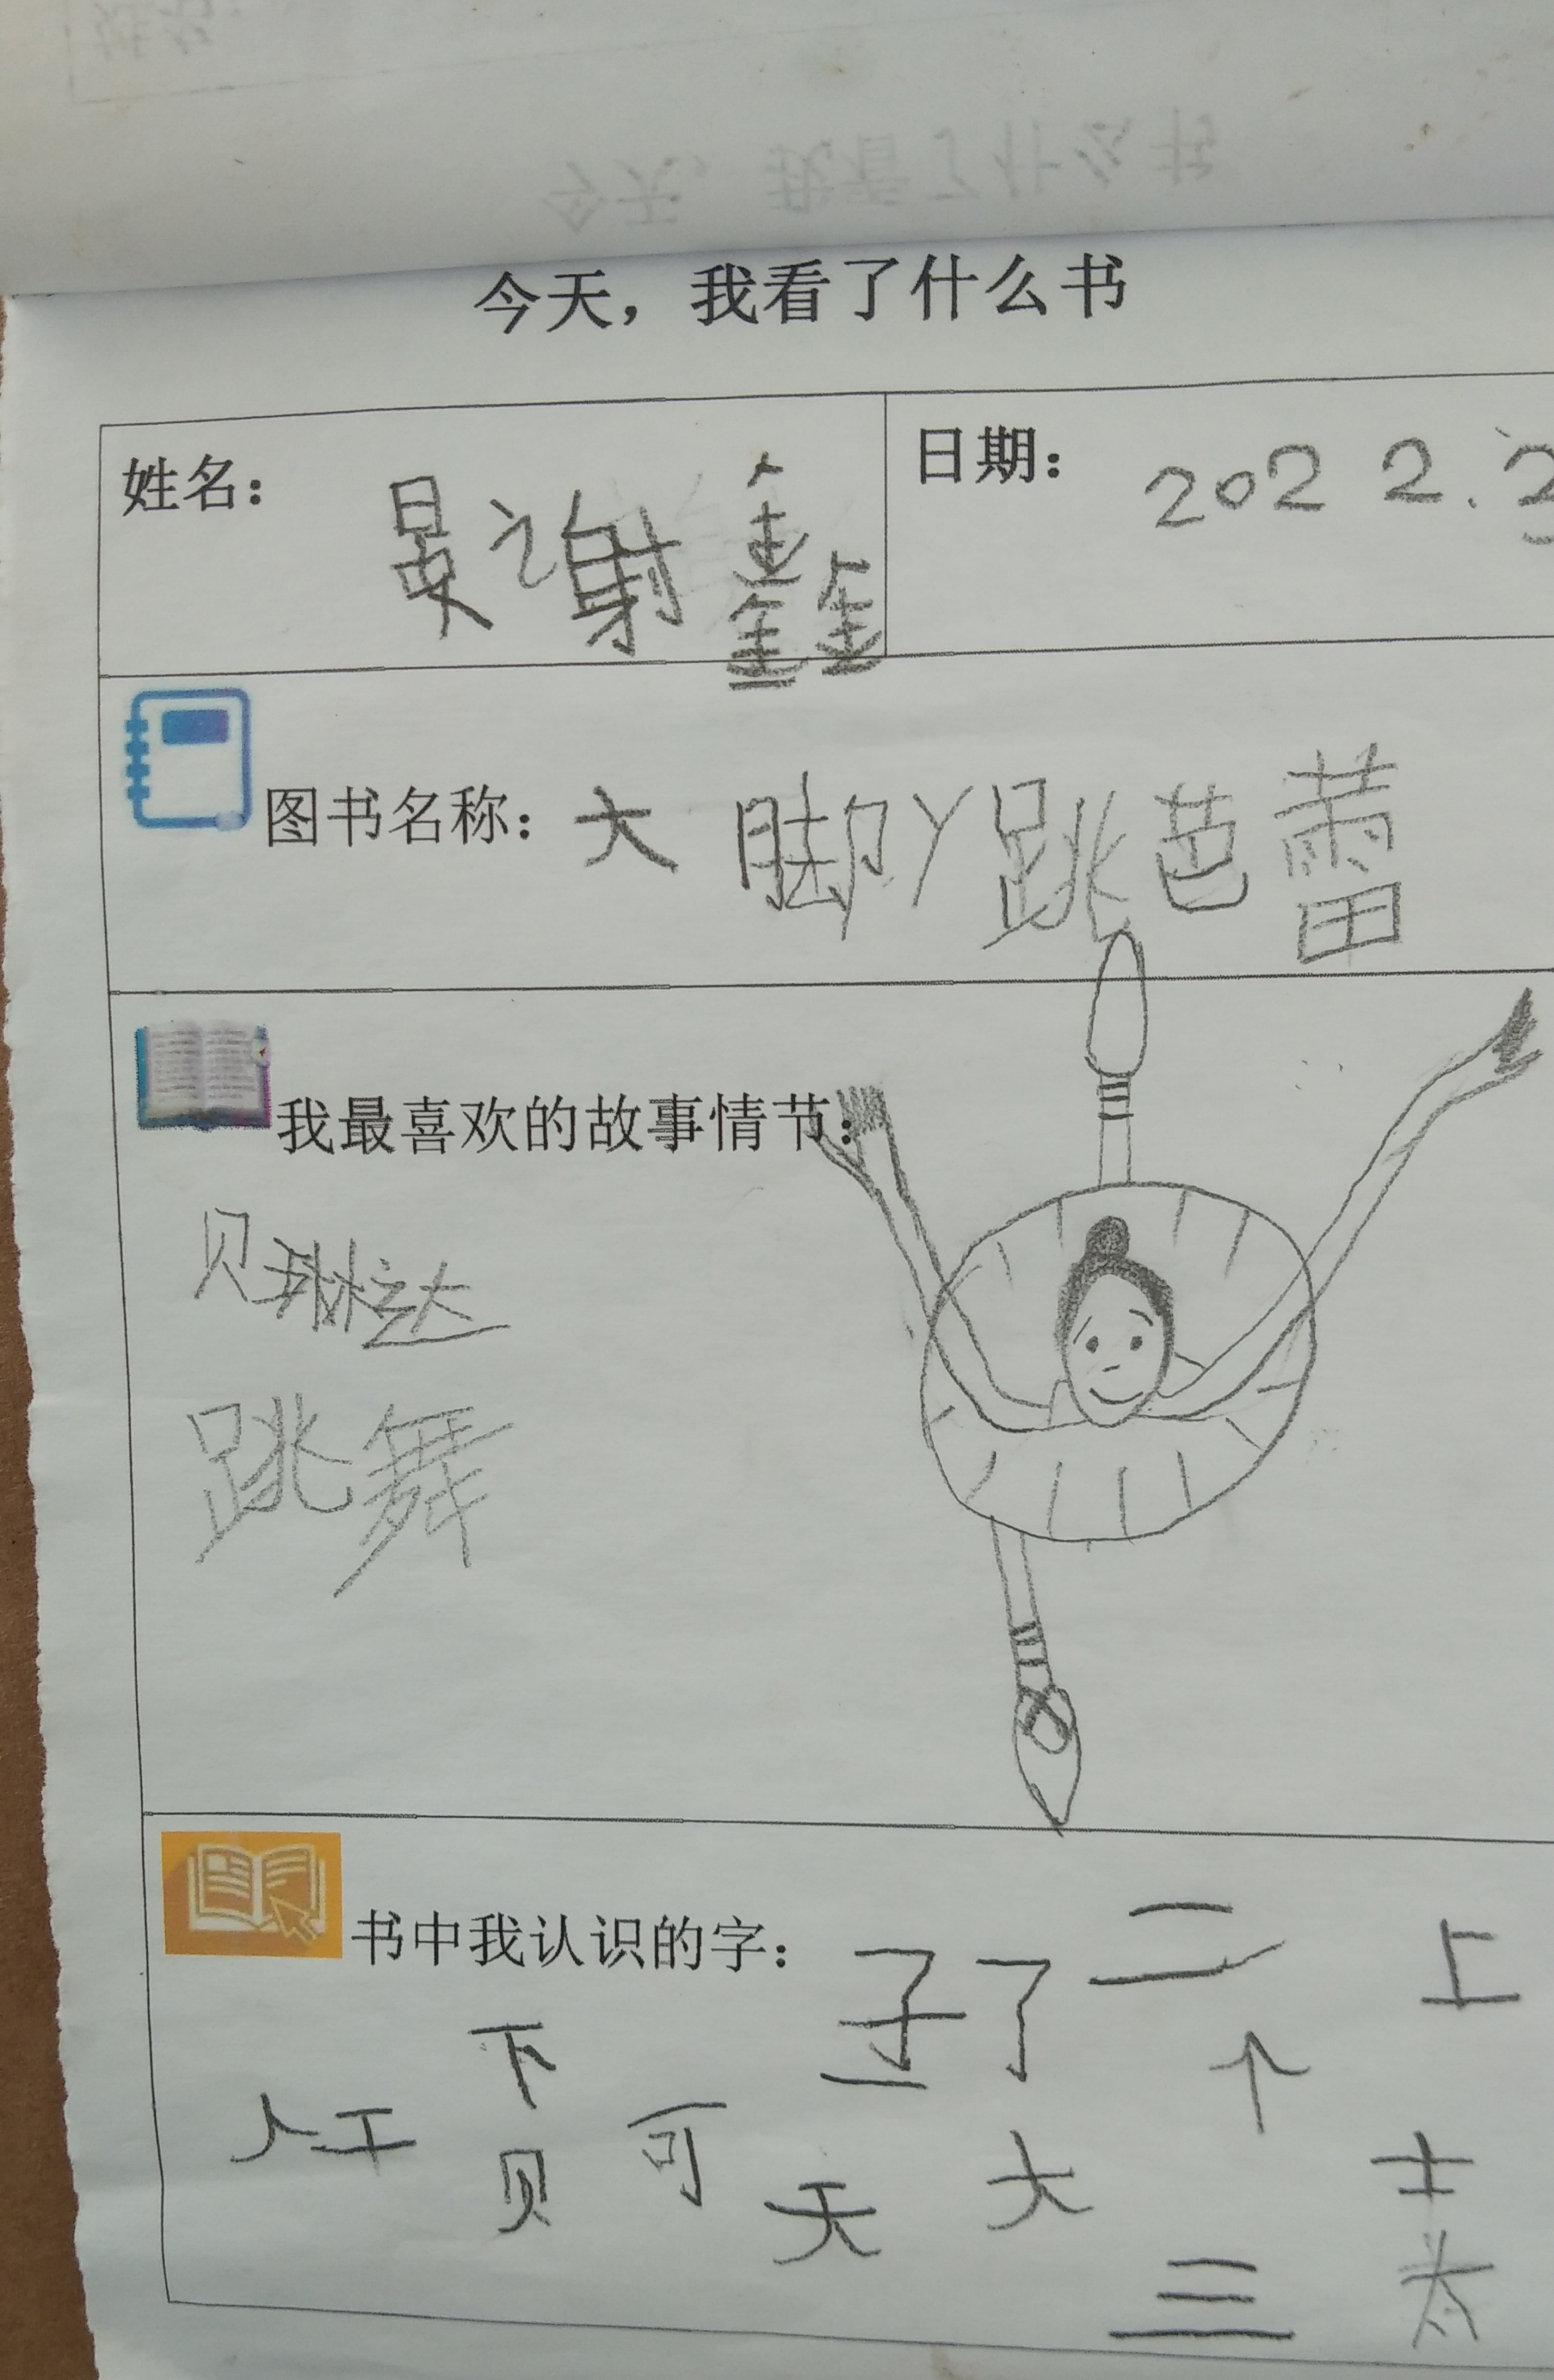 今天，我看了什么书
姓名：
谢鑫
日期：
2022.
图书名称：大脚丫跳芭蕾
我最喜欢的故事情节：
贝琳达
跳舞
书中我认识的字：子了二上
下个
人工可
贝天大士
三太